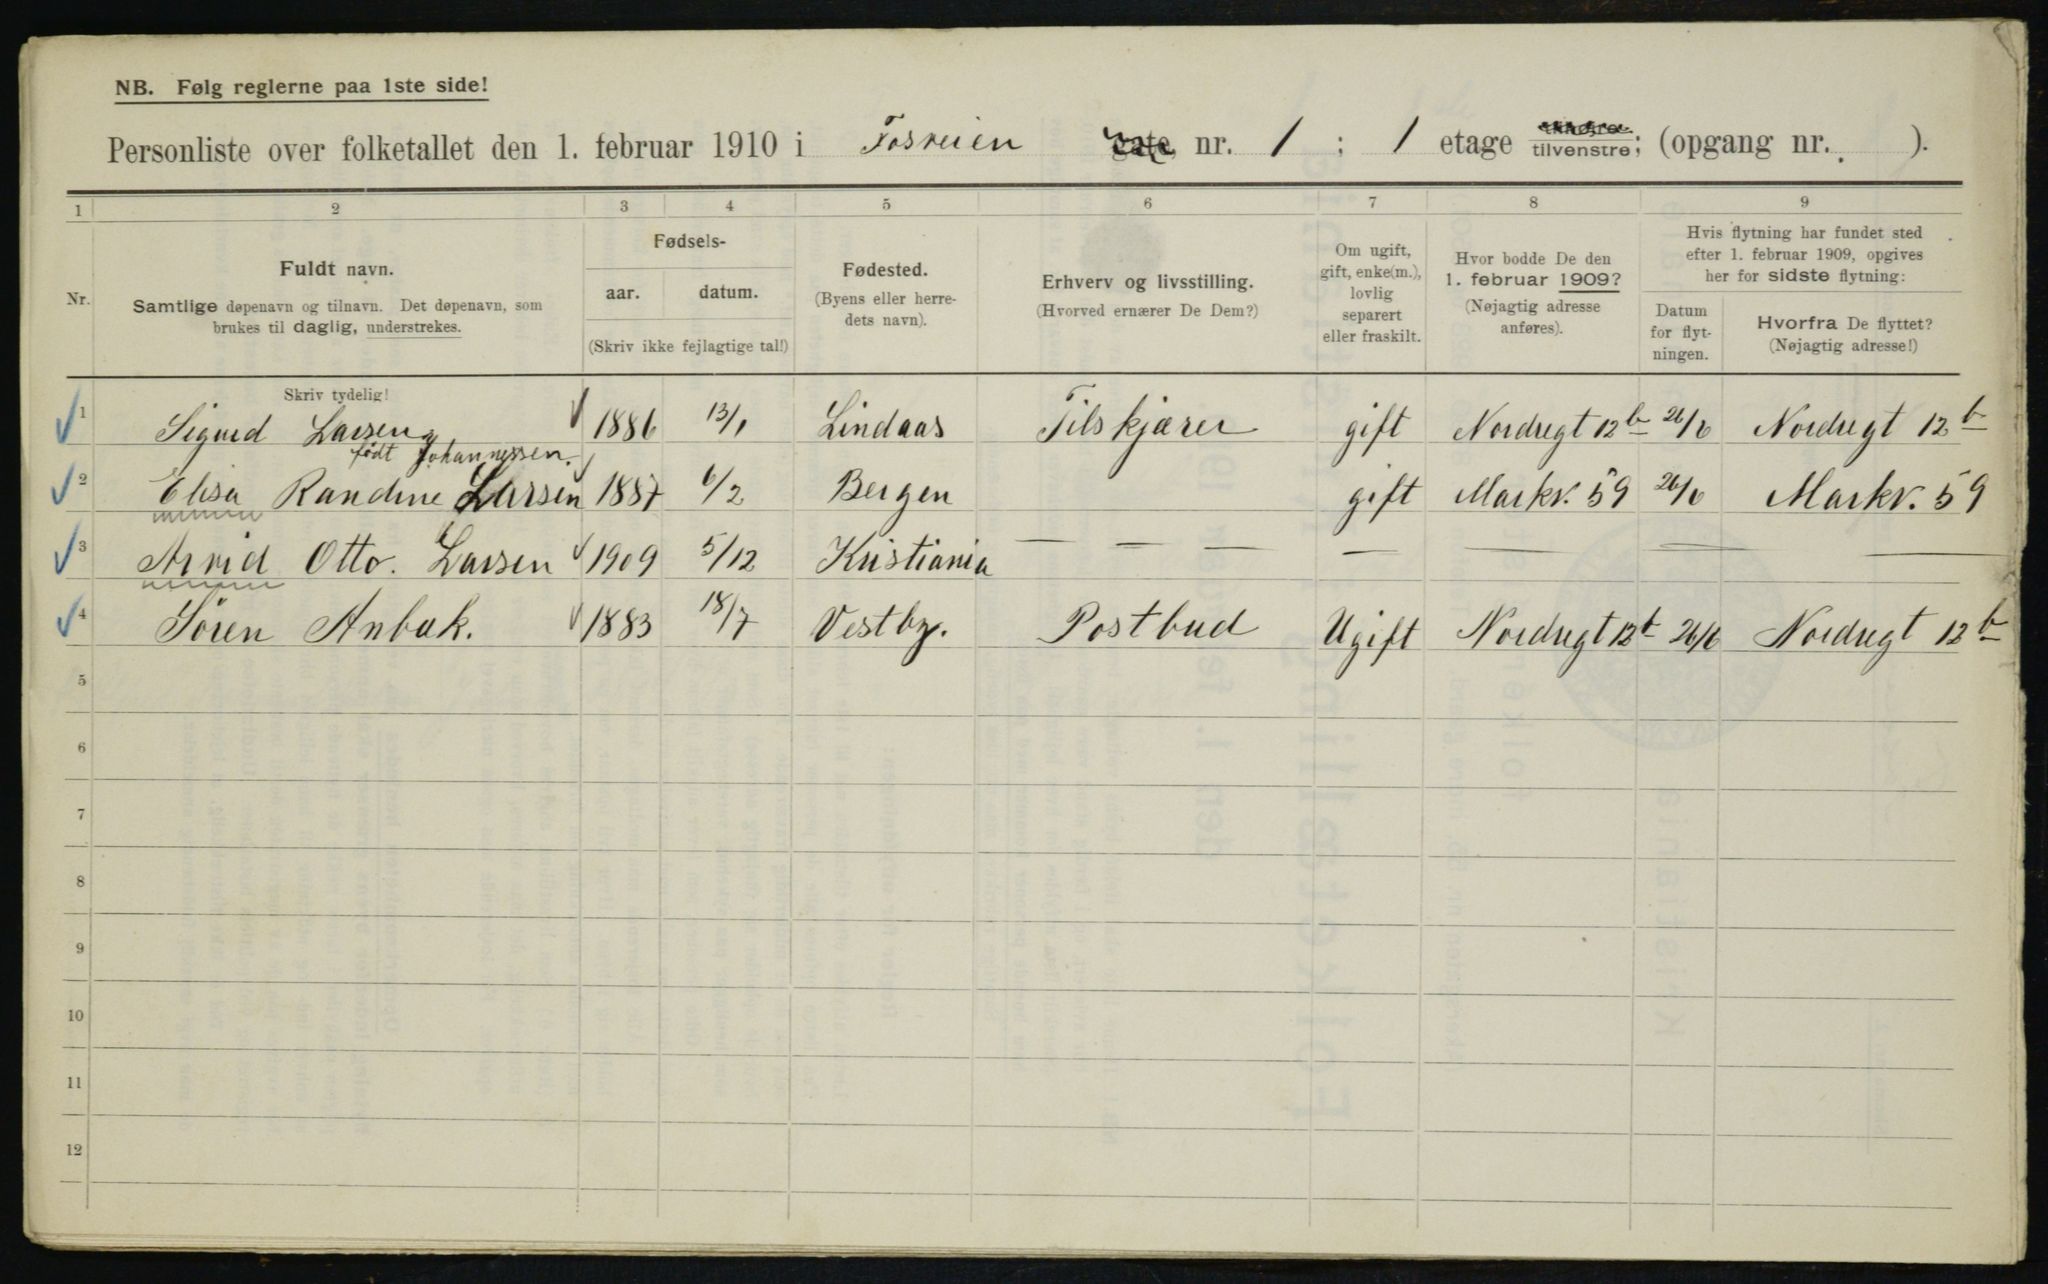 NB. Følg reglerne paa 1ste side!
Personliste over folketallet den 1. februar 1910 i Fosveien gate nr. 1 ; 1 etage tilhøire tilvenstre; (opgang nr. ).
1 2 3 4 5 6 7 8 9
Nr.
Fuldt navn.
Samtlige døpenavn og tilnavn. Det døpenavn, som
brukes til daglig, understrekes.
Fødsels-
aar. datum.
(Skriv ikke fejlagtige tal!)
Fødested.
(Byens eller herre-
dets navn).
Erhverv og livsstilling.
(Hvorved ernærer De Dem?)
Om ugift,
gift, enke(m.),
lovlig
separert
eller fraskilt.
Hvor bodde De den
1. februar 1909?
(Nøjagtig adresse
anføres).
Hvis flytning har fundet sted
efter 1. februar 1909, opgives
her for sidste flytning:
Datum
for flyt-
ningen.
Hvorfra De flyttet?
(Nøjagtig adresse!)
Skriv tydelig!
1 Sigurd Larsen 1886 13/1 Lindaas Tilskjærer gift Nordregt 12b 26/6 Nordregt 12b
født Johannessen.
2 Elisa Randine Larsen 1887 6/2 Bergen gift Markv. 59 26/6 Markv. 59
3 Arvid Otto. Larsen 1909 5/12 Kristiania — — — — — — —
4 Sören Anbæk. 1883 18/7 Vestby. Postbud Ugift Nordregt 12b 26/6 Nordregt 12b
5
6
7
8
9
10
11
12